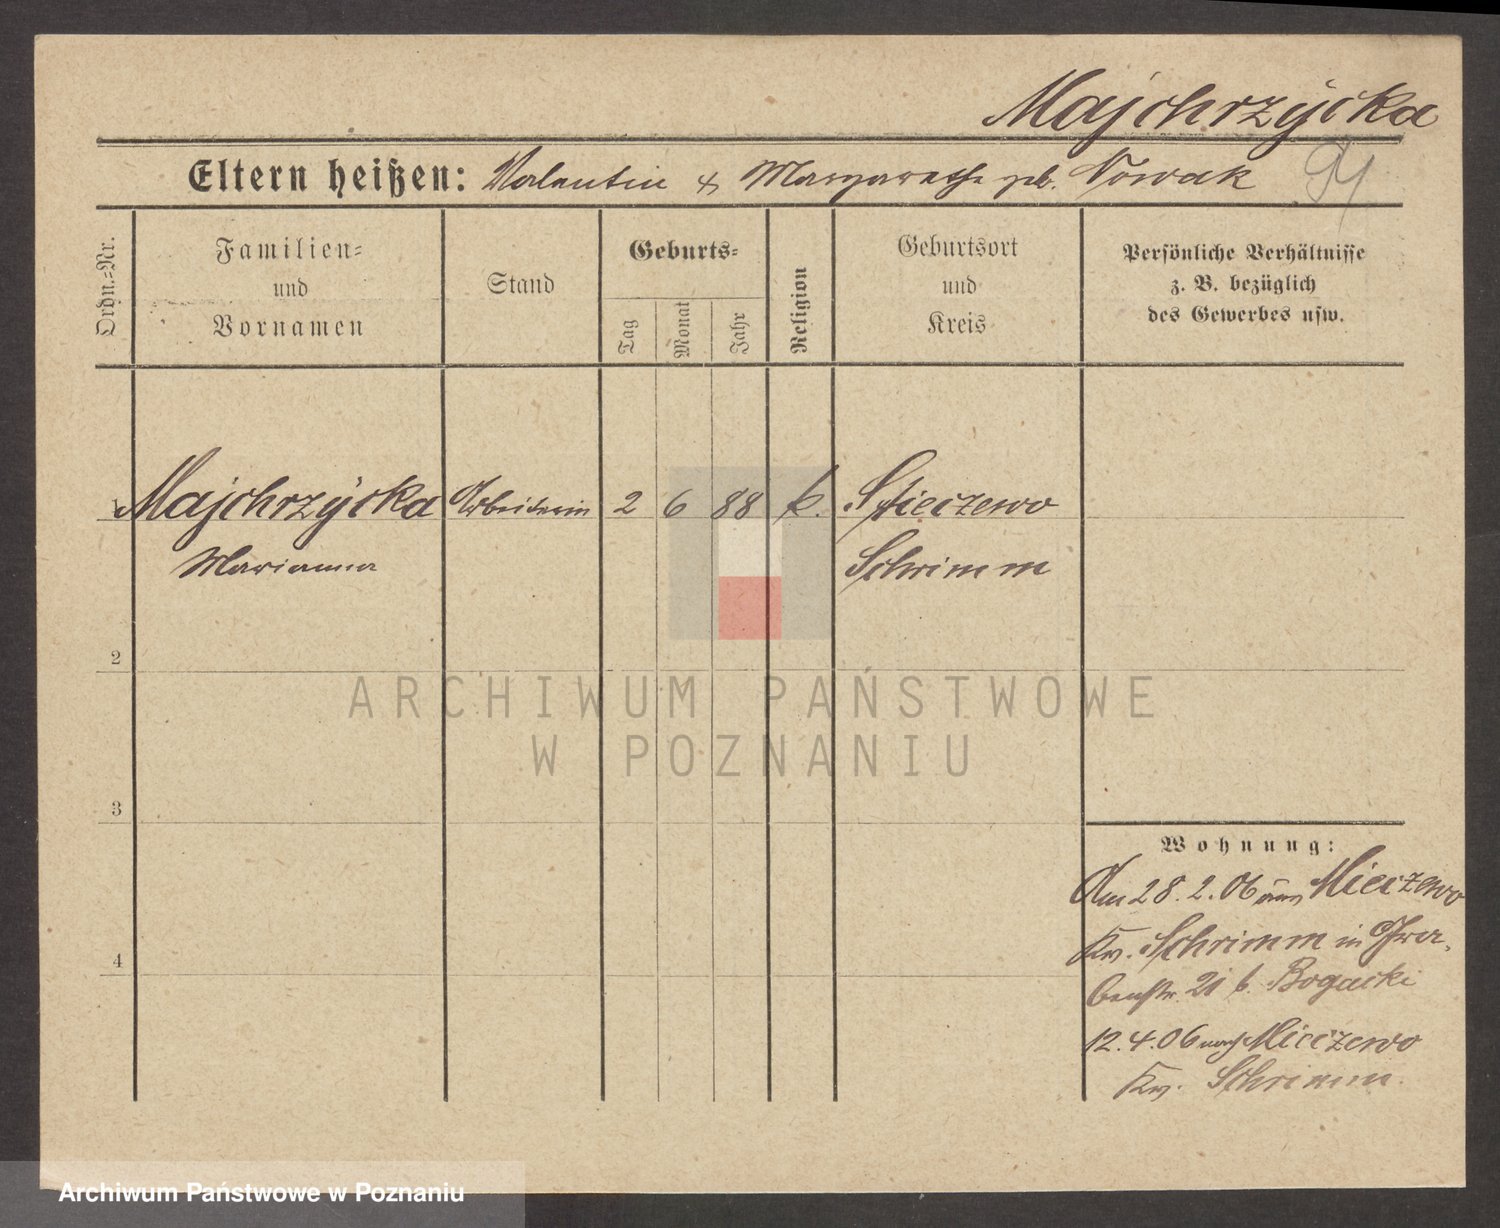 Majchrzycka
Eltern heißen: Valentin & Margarethe geb. Nowak
Ordn.-Nr.
Familien-
und
Vornamen
Stand
Geburts-
Tag
Monat
Jahr
Religion
Geburtsort
und
Kreis
Persönliche Verhältnisse
z. B. bezüglich
des Gewerbes usw.
1 Majchrzycka Arbeiterin 2 6 88 k.
Marianna Schrimm
2
ARCHIWUM PAŃSTWOWE
W POZNANIU
3
Wohnung:
Am 28.2.06 aus Mieczewo
4
Kr. Schrimm in Gra-
benstr. 21 b. Bogacki
12.4.06 nach Mieczewo
Kr. Schrimm.
Archiwum Państwowe w Poznaniu